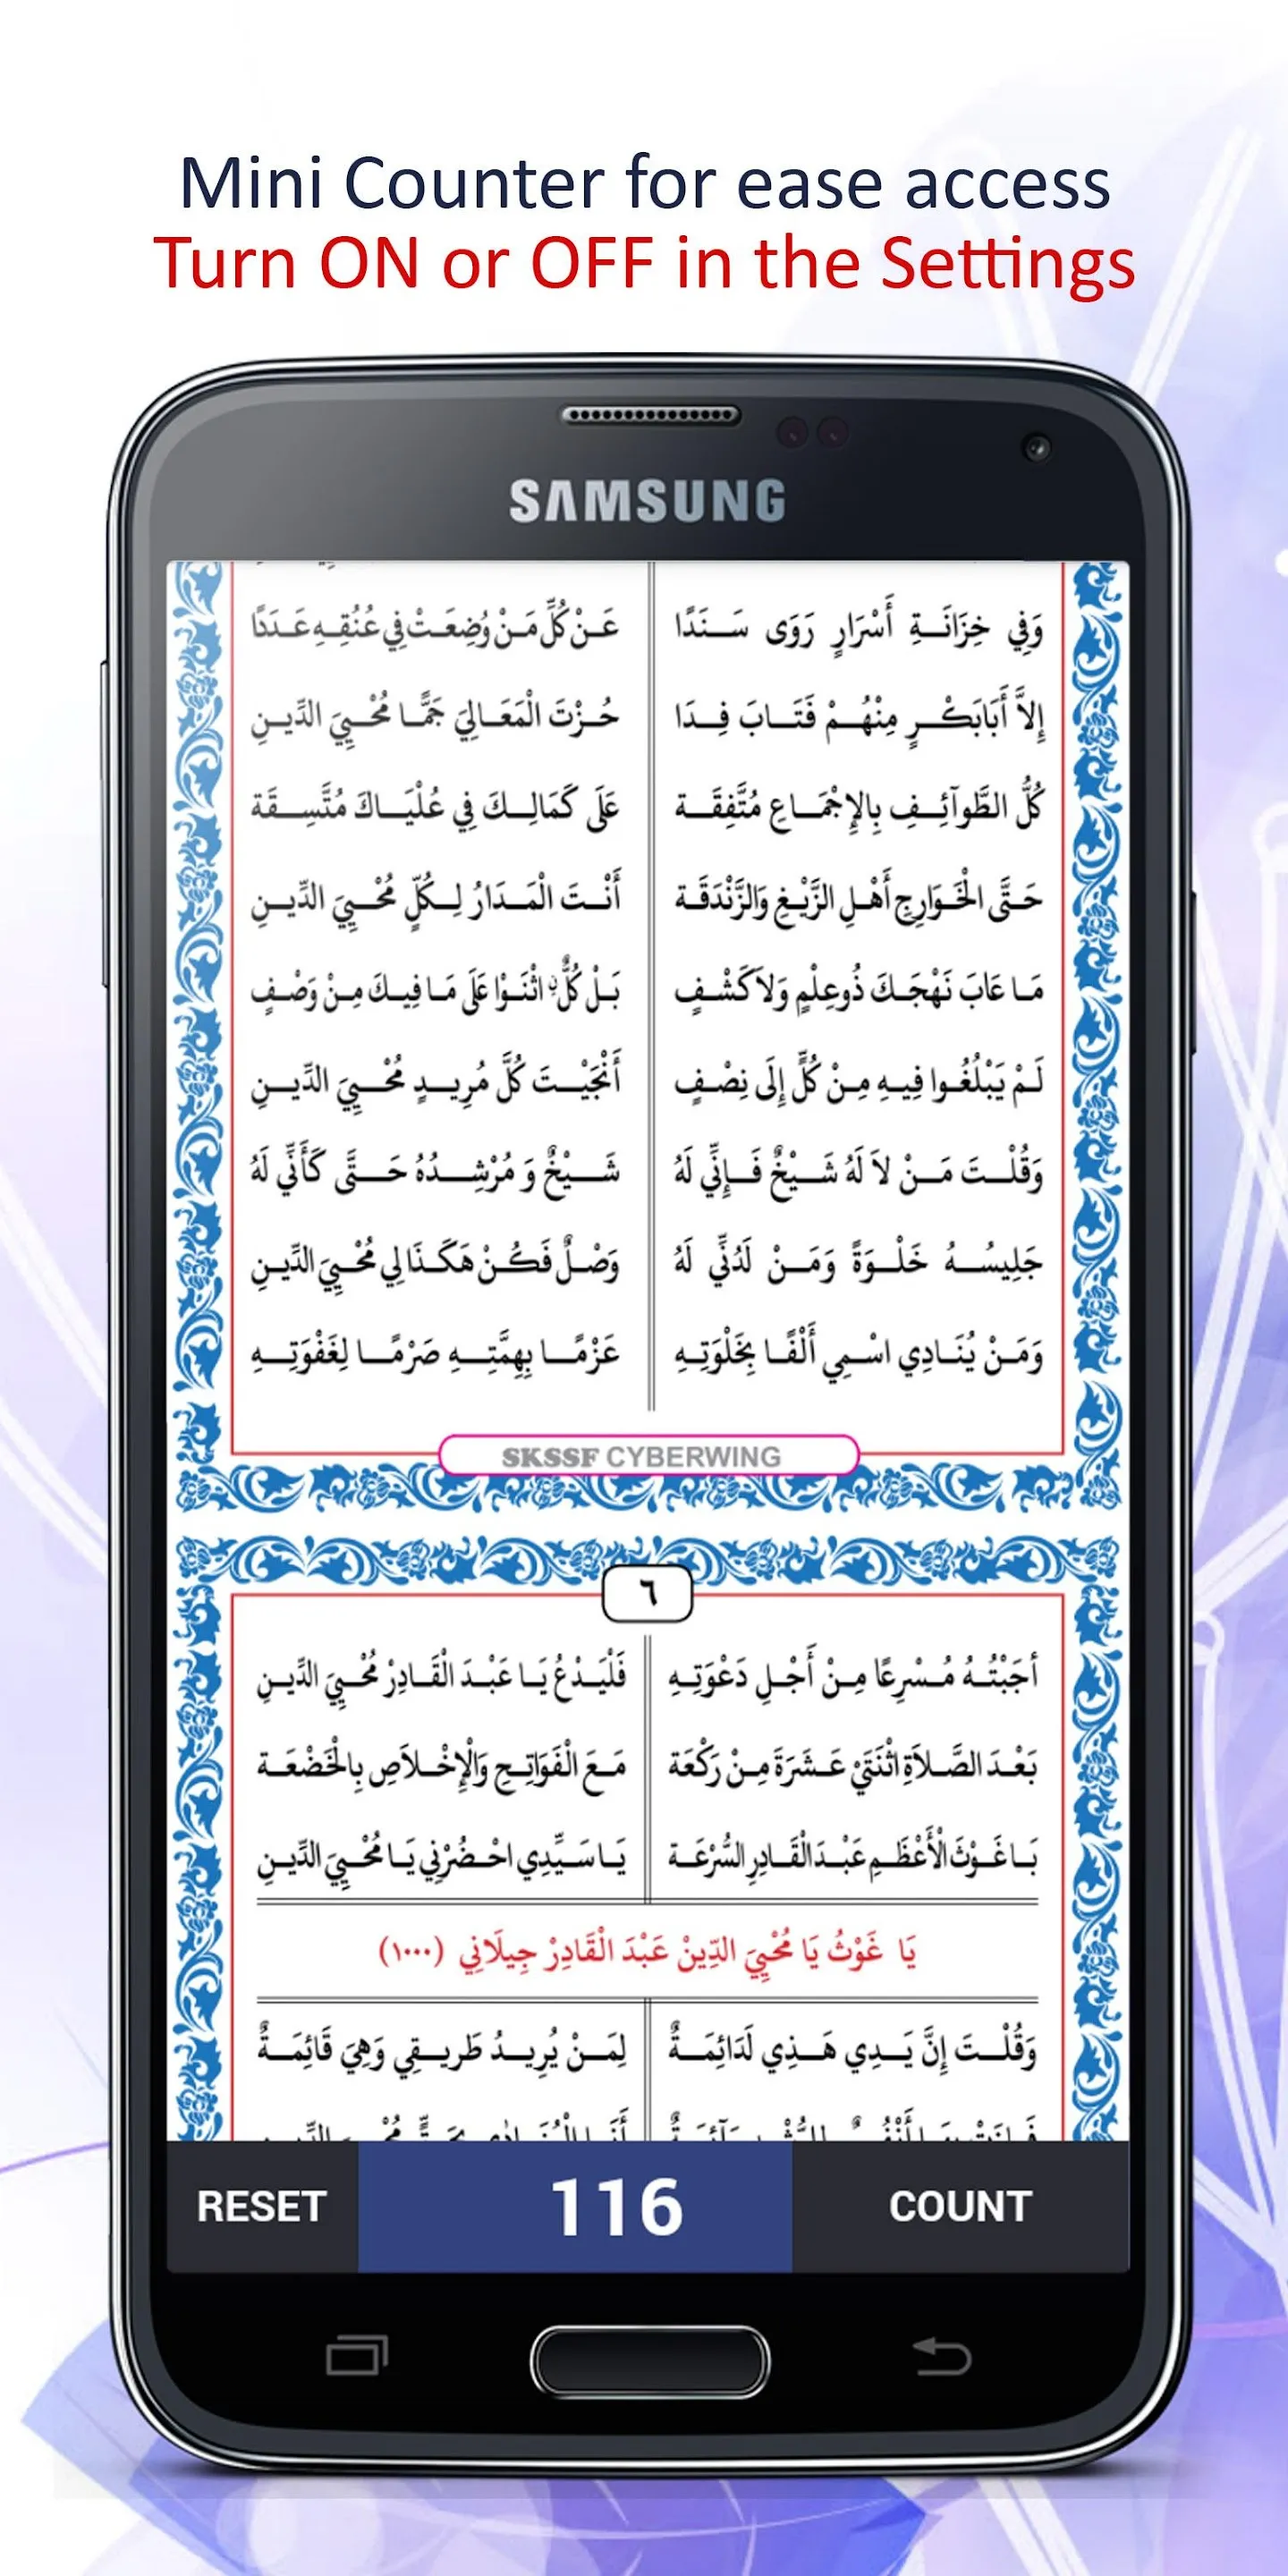 Mini Counter for ease access
Turn ON or OFF in the Settings
SAMSUNG
وَفِي خِزَانَـةِ أَسْرَارٍ رَوَى سَـنَدًا عَـنْ كُلِّ مَـنْ وُضِعَـتْ فِي عُنُقِـهِ عَـدَدًا
إِلاَّ أَبَابَكْـرٍ مِنْهُـمْ فَتَـابَ فِـدَا حُـزْتَ الْمَعَـالِيَ جَمًّـا مُحْـيِيَ الدِّيـنِ
كُلُّ الطَّوآئِـفِ بِالإِجْمَـاعِ مُتَّفِقَـة عَلَى كَمَالِـكَ فِي عُلْيَـاكَ مُتَّسِـقَة
حَتَّى الْخَـوَارِجِ أَهْـلِ الزَّيْـغِ وَالزَّنْدَقَـة أَنْـتَ الْمَـدَارُ لِـكُلٍّ مُحْـيِيَ الدِّيـنِ
مَـا عَابَ نَهْجَـكَ ذُوعِلْمٍ وَلاَ كَشْـفٍ بَـلْ كُلٌّ اثْنَـوْا عَلَى مَـا فِيـكَ مِـنْ وَصْـفٍ
لَـمْ يَبْلُغُـوا فِيـهِ مِـنْ كُلٍّ إِلَى نِصْـفٍ أَنْجَيْـتَ كُلَّ مُرِيـدٍ مُحْـيِيَ الدِّيـنِ
وَقُلْـتَ مَـنْ لاَ لَهُ شَـيْخٌ فَـإِنِّي لَهُ شَـيْخٌ وَ مُرْشِـدُهُ حَـتَّى كَأَنِّي لَهُ
جَلِيسُـهُ خَلْـوَةً وَمَـنْ لَدُنِّي لَهُ وَصْـلٌ فَكُـنْ هَكَـذَا لِي مُحْـيِيَ الدِّيـنِ
وَمَـنْ يُنَـادِي اسْـمِي أَلْفًـا بِخَلْوَتِـهِ عَزْمًـا بِهِمَّتِـهِ صَرْمًـا لِغَفْوَتِـهِ
SKSSF CYBERWING
٦
أجَبْتُـهُ مُـسْرِعًا مِـنْ أَجْـلِ دَعْوَتِـهِ فَلْيَـدْعُ يَـا عَبْـدَ الْقَـادِرْ مُحْـيِيَ الدِّيـنِ
بَعْـدَ الصَّـلاَةِ اثْنَتَيْ عَـشَرَةَ مِـنْ رَكْعَة مَـعَ الْفَوَاتِـحِ وَالْإِخْـلاَصِ بِالْخَضْعَـة
يَـا غَـوْثَ الْأَعْظَـمِ عَبْـدَ الْقَـادِرِ السُّرْعَـة يَـا سَـيِّدِي احْـضُرْنِي يَـا مُحْـيِيَ الدِّيـنِ
يَا غَوْثُ يَا مُحْيِيَ الدِّينْ عَبْدَ الْقَادِرْ جِيلَانِي (١٠٠٠)
وَقُلْـتَ إِنَّ يَـدِي هَـذِي لَدَائِمَـةٌ لِمَـنْ يُرِيـدُ طَرِيـقِي وَهِيَ قَائِمَـةٌ
RESET 116 COUNT